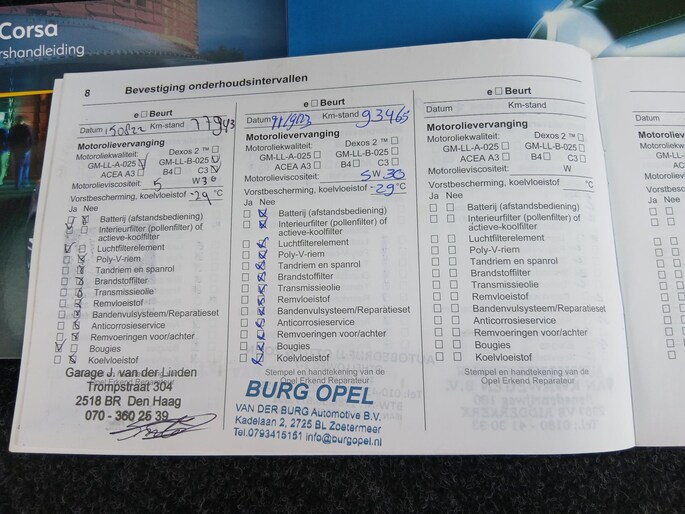 Corsa
rshandleiding
8 Bevestiging onderhoudsintervallen
e □ Beurt
Datum Km-stand
Motorolievervanging
Motoroliekwaliteit: Dexos 2 ™ □
GM-LL-A-025 GM-LL-B-025
ACEA A3 □ B4 □ C3
Motorolieviscositeit: 5 W 30
Vorstbescherming, koelvloeistof -29 °C
Ja Nee
Batterij (afstandsbediening)
Interieurfilter (pollenfilter) of
actieve-koolfilter
Luchtfilterelement
Poly-V-riem
Tandriem en spanrol
Brandstoffilter
Transmissieolie
Remvloeistof
Bandenvulsysteem/Reparatieset
Anticorrosieservice
Remvoeringen voor/achter
Bougies
Koelvloeistof
Stempel en handtekening van de
Opel Erkend Reparateur
Garage J. van der Linden
Trompstraat 304
2518 BR Den Haag
070 - 360 25 39
e □ Beurt
Datum Km-stand 93465
Motorolievervanging
Motoroliekwaliteit: Dexos 2 ™ □
GM-LL-A-025 □ GM-LL-B-025 □
ACEA A3 □ B4 □ C3 □
Motorolieviscositeit: 5W30
Vorstbescherming, koelvloeistof -29 °C
Ja Nee
Batterij (afstandsbediening)
Interieurfilter (pollenfilter) of
actieve-koolfilter
Luchtfilterelement
Poly-V-riem
Tandriem en spanrol
Brandstoffilter
Transmissieolie
Remvloeistof
Bandenvulsysteem/Reparatieset
Anticorrosieservice
Remvoeringen voor/achter
Bougies
Koelvloeistof
Stempel en handtekening van de
Opel Erkend Reparateur
BURG OPEL
VAN DER BURG Automotive B.V.
Kadelaan 2, 2725 BL Zoetermeer
Tel.0793415151 info@burgopel.nl
e □ Beurt
Datum Km-stand
Motorolievervanging
Motoroliekwaliteit: Dexos 2 ™ □
GM-LL-A-025 □ GM-LL-B-025 □
ACEA A3 □ B4 □ C3 □
Motorolieviscositeit: W
Vorstbescherming, koelvloeistof °C
Ja Nee
□ □ Batterij (afstandsbediening)
□ □ Interieurfilter (pollenfilter) of
actieve-koolfilter
□ □ Luchtfilterelement
□ □ Poly-V-riem
□ □ Tandriem en spanrol
□ □ Brandstoffilter
□ □ Transmissieolie
□ □ Remvloeistof
□ □ Bandenvulsysteem/Reparatieset
□ □ Anticorrosieservice
□ □ Remvoeringen voor/achter
□ □ Bougies
□ □ Koelvloeistof
Stempel en handtekening van de
Opel Erkend Reparateur
Datum
Motorolieve
Motoroliekwa
GM-LL-A
ACE
Motorolievisc
Vorstbescher
Ja Nee